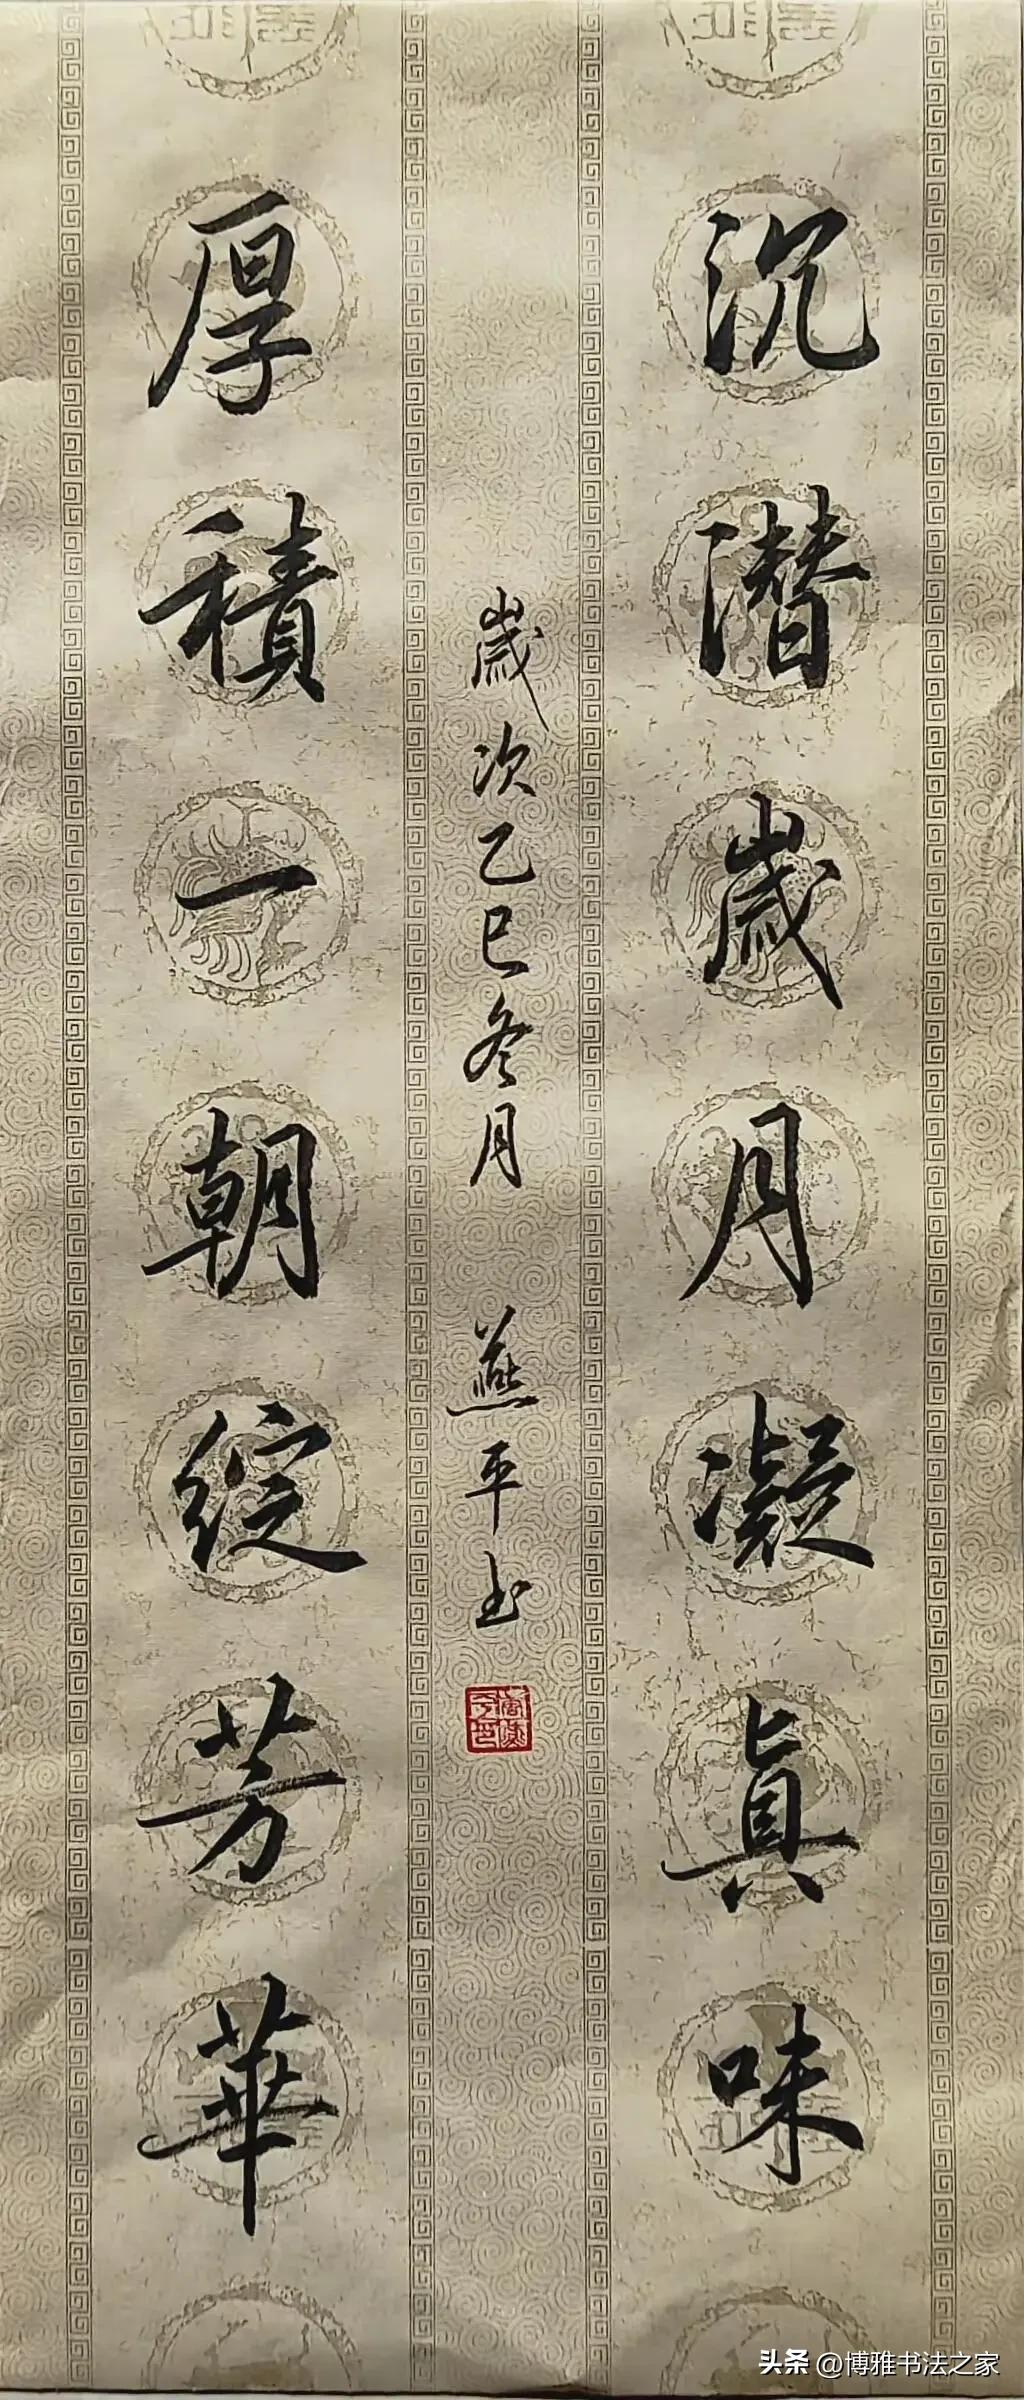 沉潜歲月凝真味
歲次乙巳冬月 燕平书
厚積一朝綻芳華
头条 @博雅书法之家